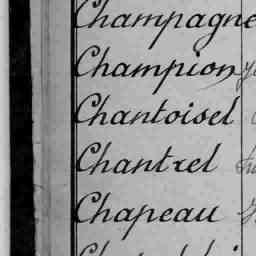 Champagne
Champion
Chantoisel
Chantrel
Chapeau